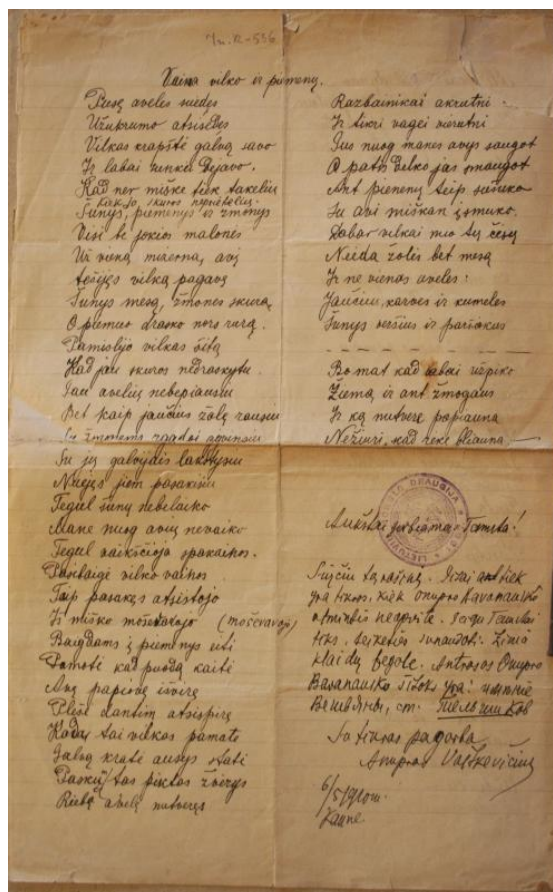 Vaina vilko ir piemenų.
Pusę aveles suėdęs
Užukrumo atsisėdęs
Vilkas krapštė galvą savo
Ir labai sunku dejavo.
Kad ner miške tiek takelių
Kaip jo skuros
Šunys, piemenys ir žmonys
Visi be jokios malonės
Už vieną mizerną avį
vilką pagavę
Šunys mesą, žmones skurą
O piemuo drasko nors
Pamislijo vilkas šitą
Kad jau skuros nedraskytu
Jau avelių nebepiausiu
Bet kaip jaučius žolę rausiu
Ir žmonems
Su jų galvijais lakstysiu
Nuejęs jiem pasakisiu
Tegul šunų nebelaiko
Mane nuog avių nevaiko
Tegul vaikščioja spakainos.
Pasibaigė vilko vainos
Taip pasakęs atsistojo
Iš miško
Baigdams į piemenys eiti
Pamatė kad puodą kaitė
Avį papiovę išvirę
Plėšė dantim atsispirę
Kadą tai vilkas pamatė
Galvą kratė ausys statė
Paskui tas piktas žvėrys
Riebą avelę nutvėręs
Razbainikai akrutni
Ir tikri vagei
Jus nuog manęs avys saugot
O patįs vilko jas smaugot
Ant piemenų teip sušuko
Su avi miškan įsmuko.
Dabar vilkai nuo tų česų
Neėda žolės bet mesą
Ir ne vienas aveles:
Jaučius, karves ir kumeles
Šunys veršius ir paršiukus
Bo mat kad labai užpiko
Žiemą ir ant žmogaus
Ir ką nutveria papiauna
Nežiuri, kad rėkė bliauna
Aukštai gerbiama Tamsta!
Siųčiu tą raštą.
yra tikras, kiek Onupro Baranausko
atmintis neapvilė. Jeigu Tamstai
tiks, teiksitės sunaudoti. Žinia
klaidų begalė. Antrasas Onupro
Baranausko šitoks yra:
ст.
Su tikra pagarba
Anupras Vaškevičius
6/5/1910 m.
Kaune